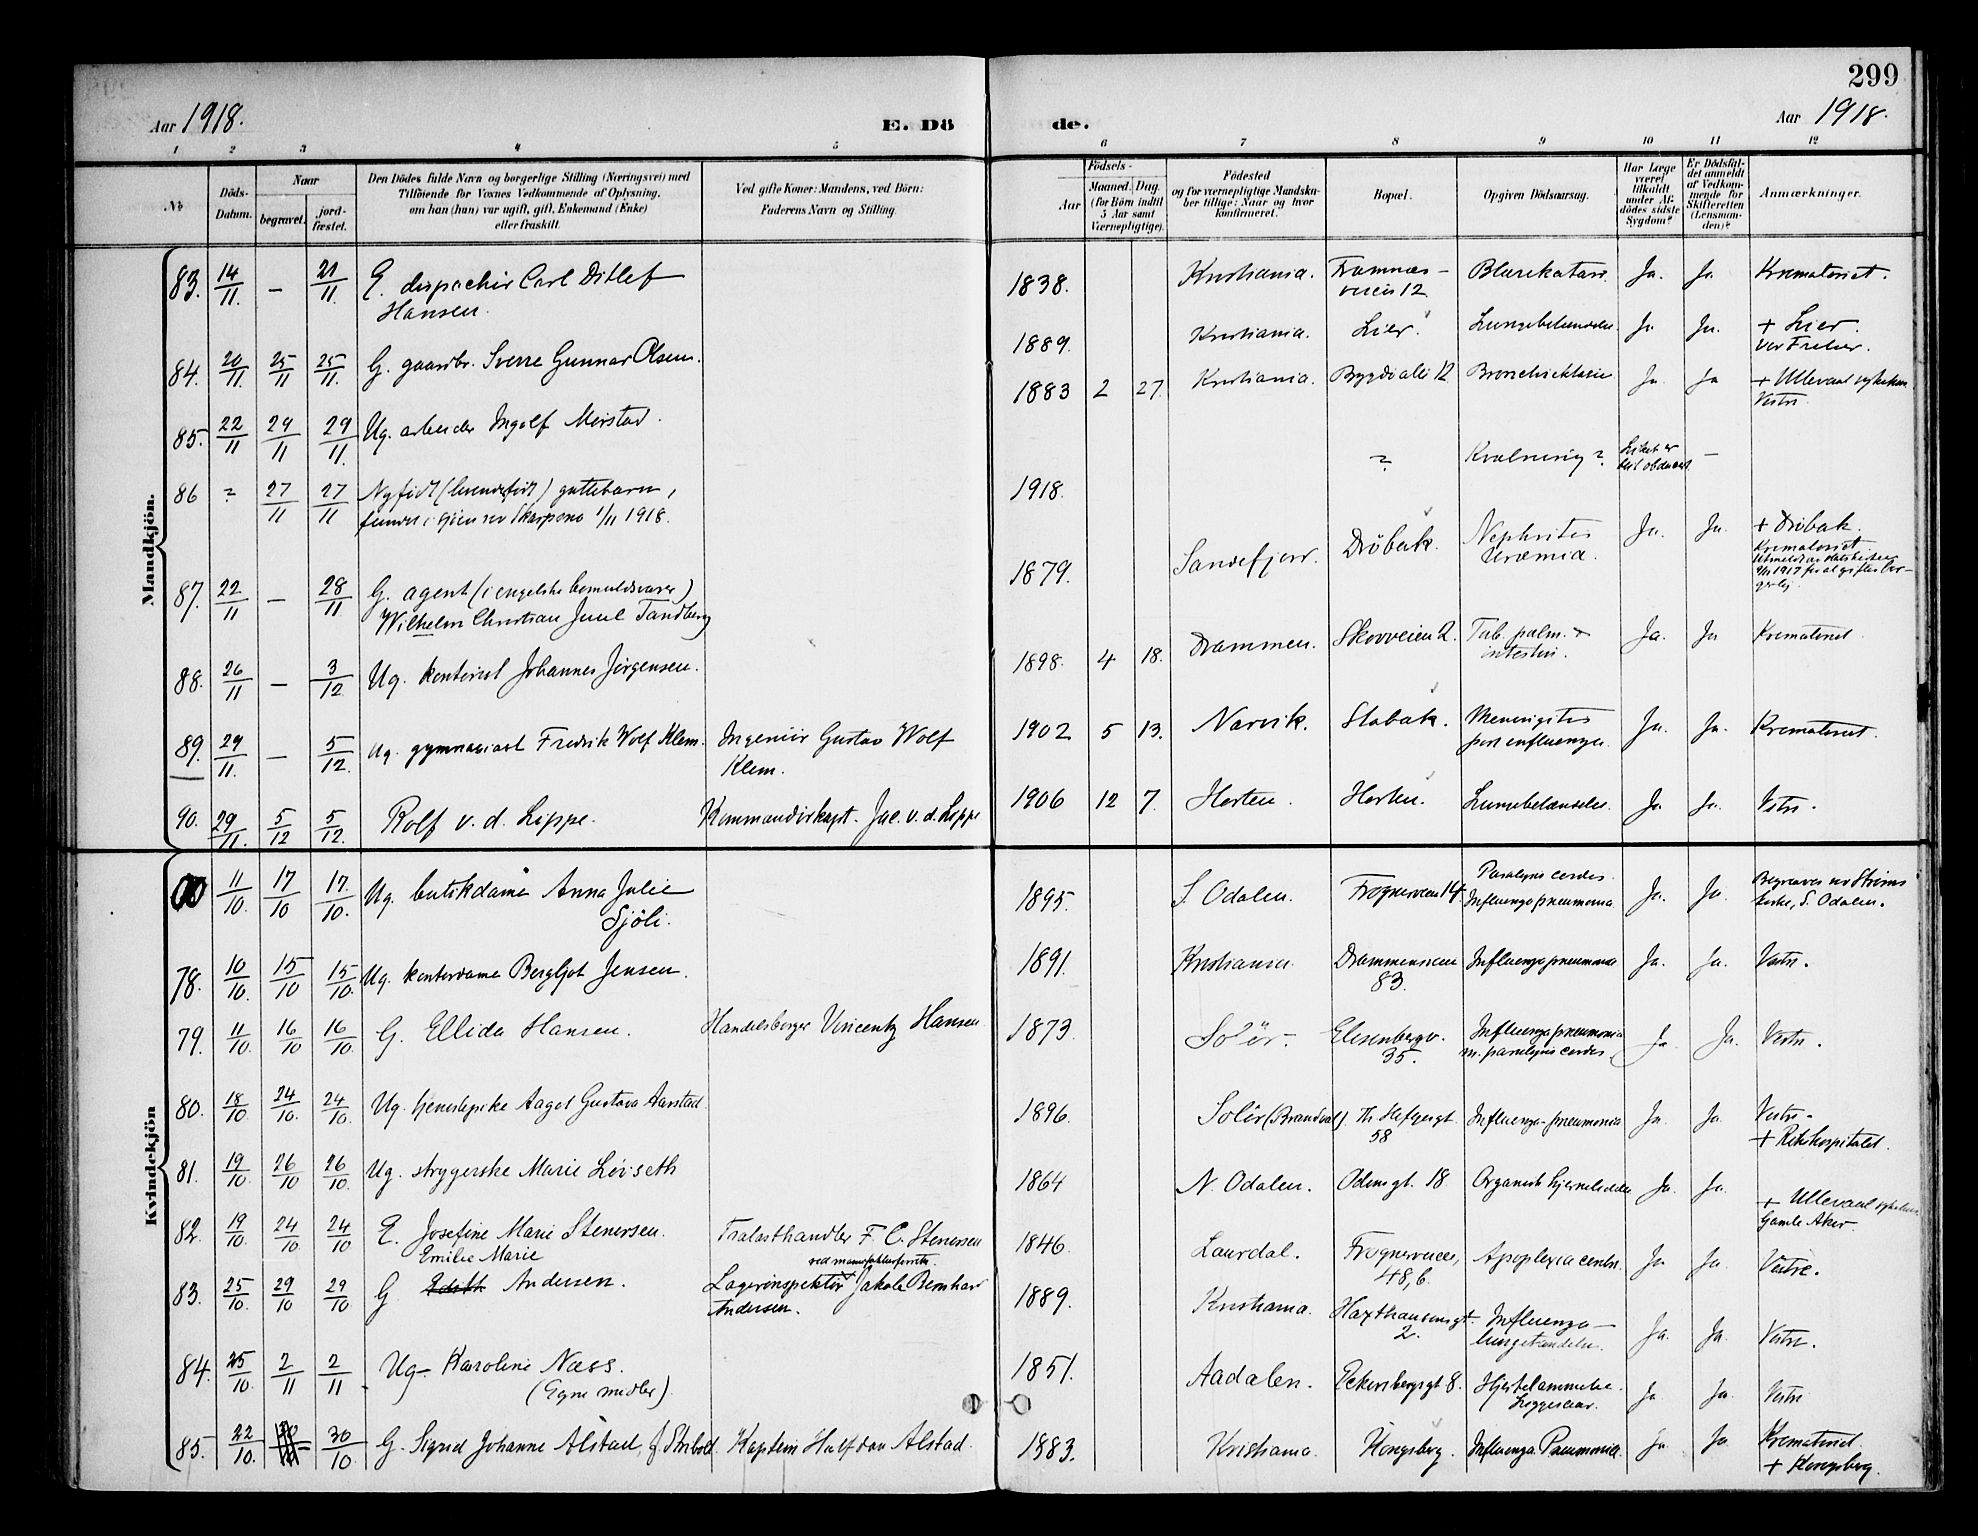 299
Aar 1918.
E. Dö de.
Aar 1918.
1 2 3 4 5 6 7 8 9 10 11 12
№
Döds-Datum.
Naar
begravet.
jord-fæstet.
Den Dödes fulde Navn og borgerlige Stilling (Næringsvei) med
Tilföiende for Voxnes Vedkommende af Oplysning,
om han (hun) var ugift, gift, Enkemand (Enke)
eller fraskilt.
Ved gifte Koner: Mandens, ved Börn:
Faderens Navn og Stilling.
Födsels-
Aar
Maaned. Dag.
(for Börn indtil
5 Aar samt
Værnepligtige).
Födested
og for værnepligtige Mandska-
ber tillige: Naar og hvor
konfirmeret.
Bopæl.
Opgiven Dödsaarsag.
Har Læge
været
tilkaldt
under Af-
dödes sidste
Sygdom?
Er Dödsfal-
det anmeldt
af Vedkom-
mende for
Skifteretten
(Lensman-
den)?
Anmærkninger.
Mandkjön.
83. 14/11 — 21/11. E. dispachör Carl Ditlef
Hansen.
1838. Kristiania. Framnæs-
veien 12 Blærekatarr. Ja. Ja Krematoriet.
84. 20/11. 25/11 25/11. G. gaardbr. Sverre Gunnar Olsen.
1889. Kristiania. Lier. Lungebetændelse. Ja Ja. + Lier.
Vor Frelser.
85. 22/11 29/11 29/11. Ug. arbeider Ingolf Mørstad.
1883 2 27. Kristiania. Bygdø allé 12 Bronchiektasie Ja. Ja + Ullevaal sykehus.
Vestre.
86 ? 27/11 27/11 Nyfødt (levendefødt) guttebarn,
funden i sjøen ved Skarpsno 1/11 1918.
1918. ? Kvælning? Liket er
bet. obduceret —
87. 22/11 — 28/11 G. agent (i engelske bomuldsvarer)
Wilhelm Christian Juul Tandberg
1879. Sandefjord. Drøbak. Nephritis
Uræmia. Ja. Ja. + Drøbak.
Krematoriet.
88. 26/11 — 3/12 Ug. kontorist Johannes Jørgensen.
1898. 4 18. Drammen. Skovveien 2. Tub. pulm. +
intestin. Ja. Ja Krematoriet.
89. 29/11. — 5/12. Ug. gymnasiast Fredrik Wolf Klem. Ingeniør Gustav Wolf
Klem.
1902 5 13. Narvik. Stabæk. Meningitis
post influenza. Ja. Ja. Krematoriet.
90. 29/11. 5/12 5/12. Rolf v. d. Lippe. Kommandørkapt. Jac. v. d. Lippe
1906 12 7. Horten. Horten. Lungebetændelse. Ja Ja. Vestre.
Kvindekjön
11/10 17/10 17./10. Ug. butikdame Anna Julie
Sjøli.
1895. S. Odalen. Frognerveien 14. Paralysis cordis.
Influenza pneumonia Ja. Ja. Begraves ved Strøms
kirke, S. Odalen.
78. 10/10. 15/10 15/10. Ug. kontordame Bergljot Jensen.
1891. Kristiania. Drammensveien
83. Influenza pneumonia Ja. Ja. Vestre.
79. 11/10. 16/10 16/10. G. Ellida Hansen. Handelsborger Vincentz Hansen
1873 Solør. Elisenbergv.
35. Influenza pneumonia
m. paralysis cordis. Ja Ja. Vestre.
80. 18/10 24/10. 24/10. Ug. tjenestepike Aagot Gustava Aarstad.
1896. Solør (Brandval). Th. Heftyesgt.
58 Influenza-pneumonia Ja. Ja Vestre.
+ Rikshospitalet.
81. 19/10. 26/10 26/10. Ug. strygerske Marie Løvseth
1864 N. Odalen. Odinsgt. 18. Organisk hjernelidelse Ja. Ja. + Ullevaal sykehus.
Gamle Aker.
82. 19/10. 24/10. 24/10. E. Josefine Marie Stenersen. Trælasthandler F. C. Stenersen
1846. Laurdal. Frognerveien,
48, b. Apoplexia cerebri. Ja Ja Vestre.
83. 25/10. 29/10 29/10. G Emilie Marie
Edith Andersen. Lagerinspektør Jakob Bernhard
Andersen.
1889. Kristiania. Haxthausensgt.
2. Influenza—
lungebetændelse. Ja. Ja. Vestre.
84. 25/10. 2/11 2/11 Ug. Karoline Næss.
(Egne midler).
1851. Aadalen. Eckersbergsgt 8. Ja Ja. Vestre
85. 22/10. 30/10 G. Sigrid Johanne Alstad, f. Stribolt Kaptein Halfdan Alstad.
1883. Kristiania. Kongsberg. Influenza Pneumonia. Ja Ja Krematoriet.
+ Kongsberg.